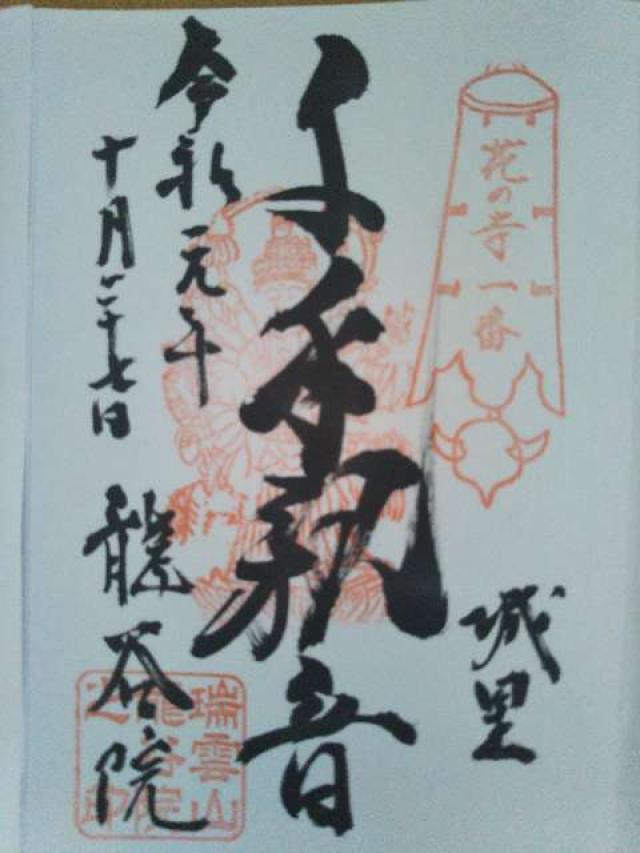 花の寺一番
城里
千手観音
令和元年
十月二十七日
龍谷院
瑞雲山
龍谷院
之印